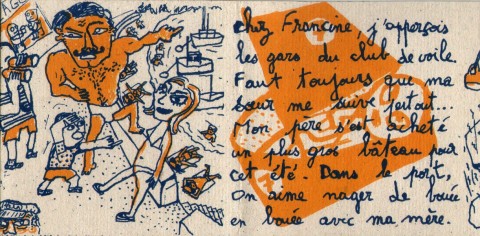 chez Francine, j'apperçois
les gars du club de voile.
Faut toujours que ma
sœur me suive partout...
Mon père s'est acheté
un plus gros bâteau pour
cet été. Dans le port,
on aime nager de bouée
en bouée avec ma mère.